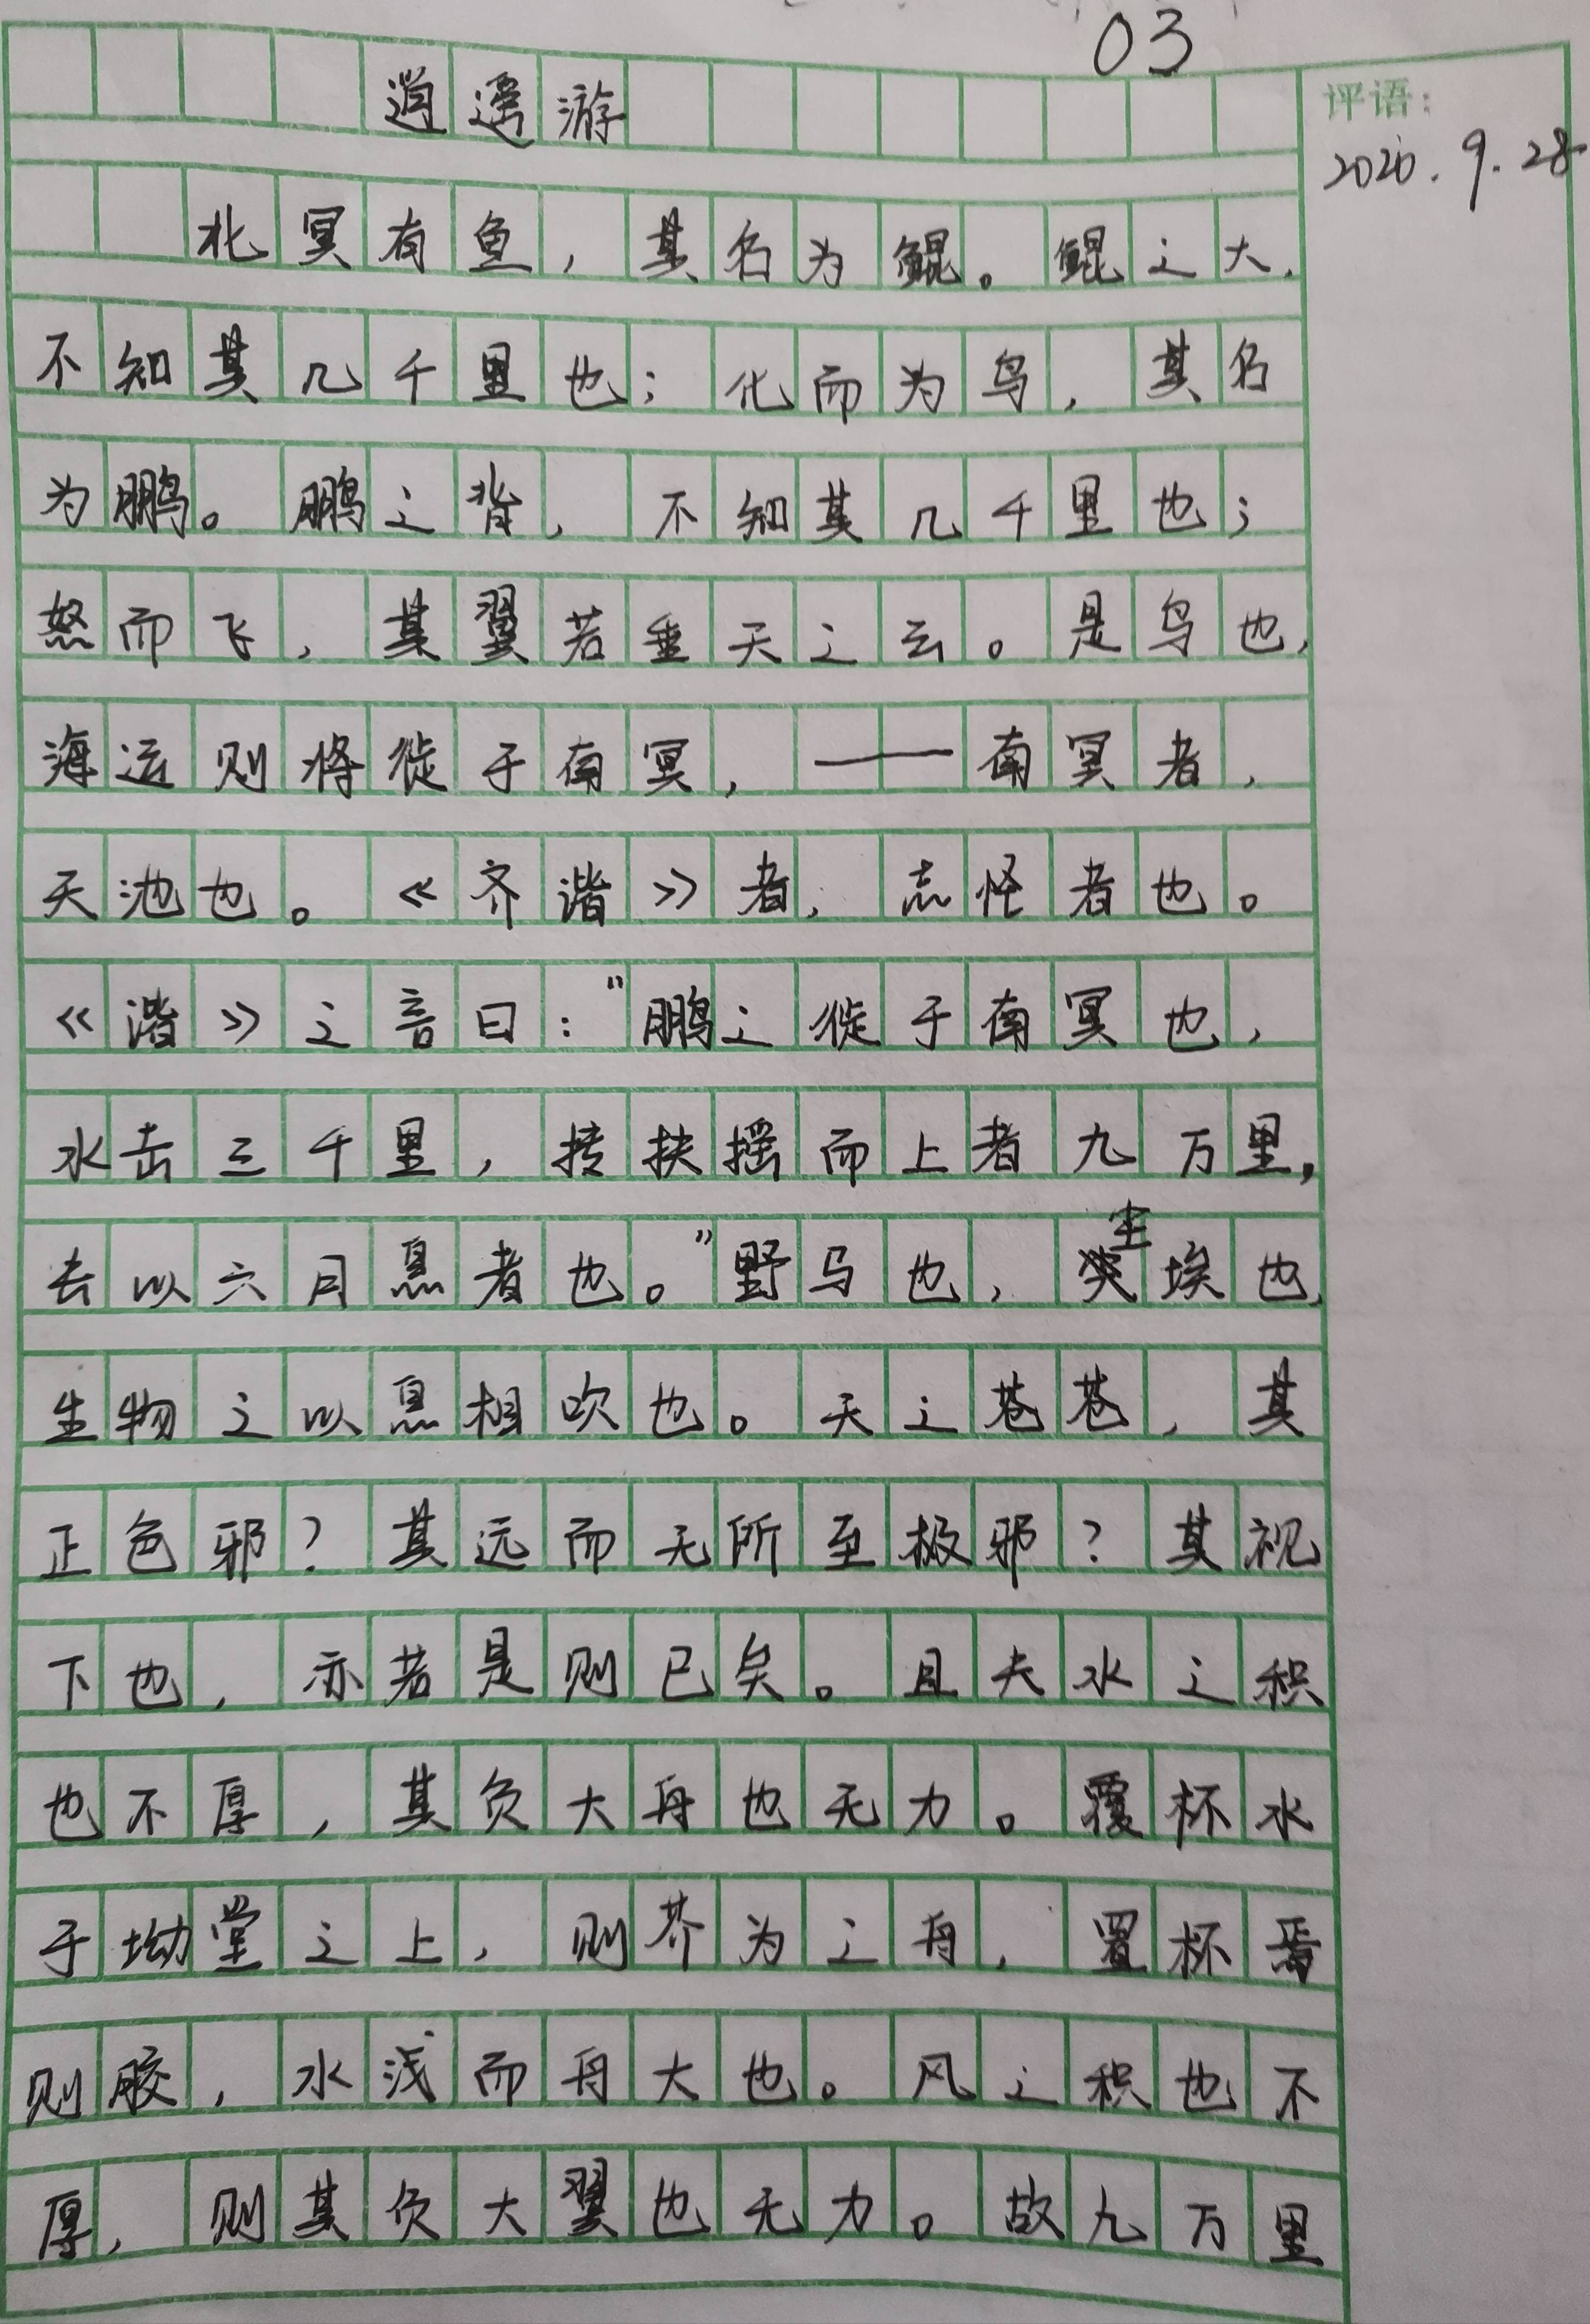 03
逍遥游
评语：
2020.9.28
北冥有鱼，其名为鲲。鲲之大，
不知其几千里也；化而为鸟，其名
为鹏。鹏之背，不知其几千里也；
怒而飞，其翼若垂天之云。是鸟也，
海运则将徙于南冥，——南冥者，
天池也。《齐谐》者，志怪者也。
《谐》之言曰：“鹏之徙于南冥也，
水击三千里，抟扶摇而上者九万里，
去以六月息者也。”野马也，尘埃也，
生物之以息相吹也。天之苍苍，其
正色邪？其远而无所至极邪？其视
下也，亦若是则已矣。且夫水之积
也不厚，其负大舟也无力。覆杯水
于坳堂之上，则芥为之舟，置杯焉
则胶，水浅而舟大也。风之积也不
厚，则其负大翼也无力。故九万里